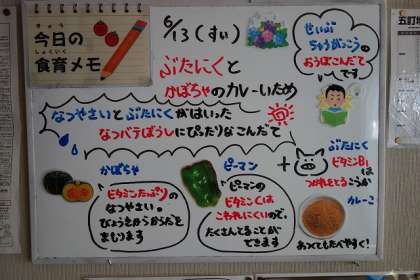 きょう
今日の
しょくいく
食育メモ
6/13(すい)
ぶたにくと
かぼちゃのカレーいため
せいぶ
ちゅうがっこうの
おうぼこんだて
です。
なつやさいとぶたにくがはいった
なつバテぼうしにぴったりなこんだて
かぼちゃ
ビタミンたっぷりの
なつやさい。
びょうきからからだを
まもります
ピーマン
ピーマンの
ビタミンCは
こわれにくいので、
たくさんとることが
できます
+
ぶたにく
ビタミンB1
は
つかれをとるこうか
カレーこ
あつくてもたべやすく!